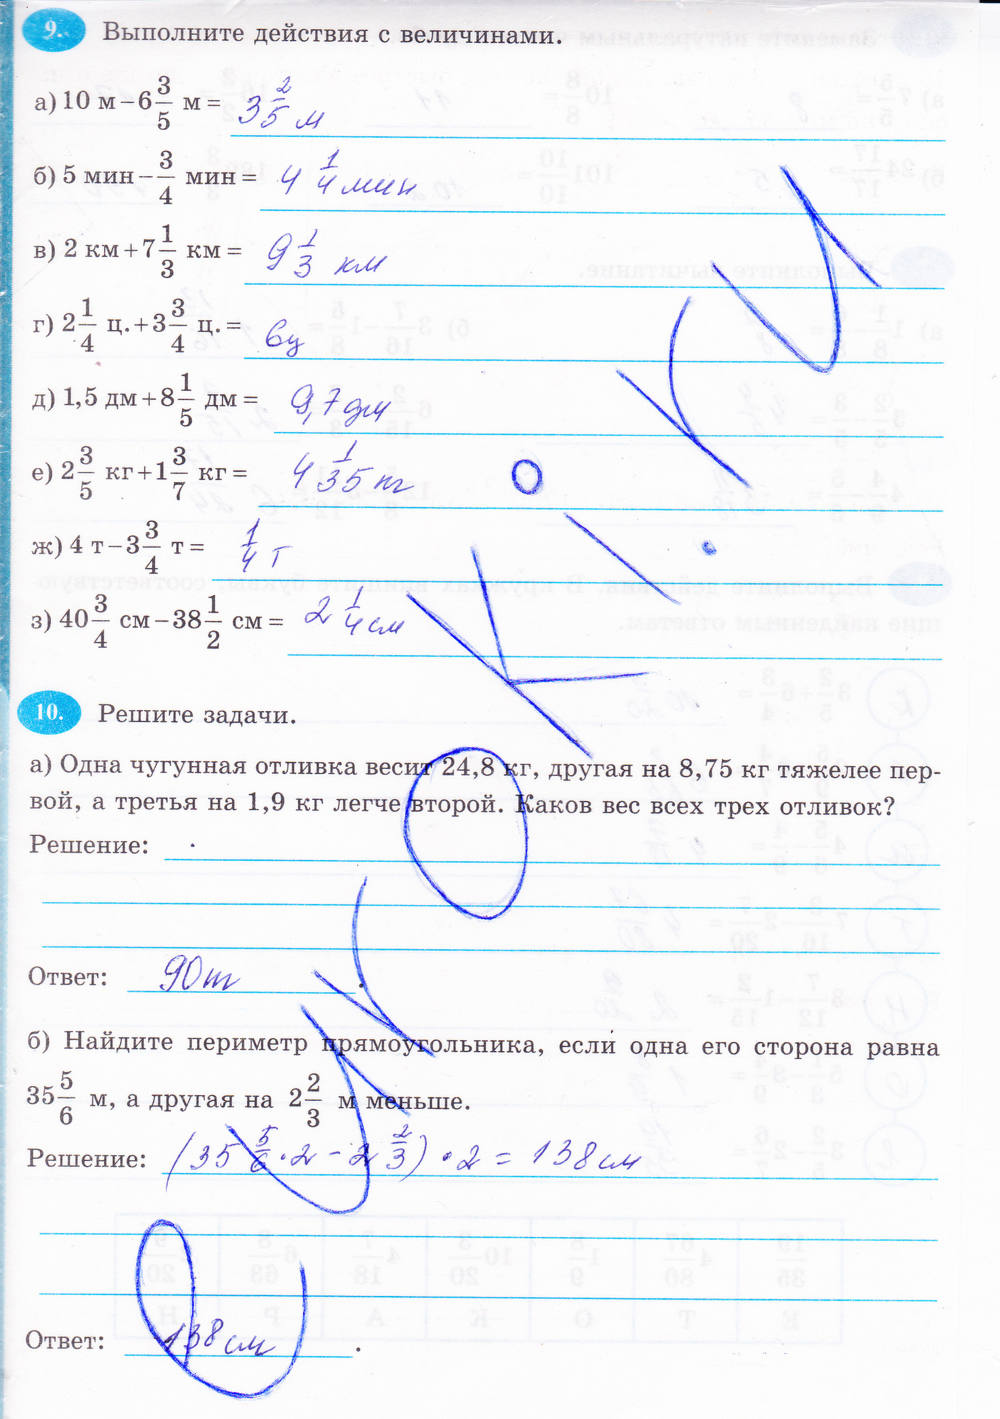 9. Выполните действия с величинами.
а) 10 м – 6 3/5 м = 3 2/5 м
б) 5 мин – 3/4 мин = 4 1/4 мин
в) 2 км + 7 1/3 км = 9 1/3 км
г) 2 1/4 ц. + 3 3/4 ц. = 6ц
д) 1,5 дм + 8 1/5 дм = 9,7 дм
е) 2 3/5 кг + 1 3/7 кг = 4 1/35 кг
ж) 4 т – 3 3/4 т = 1/4 т
з) 40 3/4 см – 38 1/2 см = 2 1/4 см
10. Решите задачи.
а) Одна чугунная отливка весит 24,8 кг, другая на 8,75 кг тяжелее пер-
вой, а третья на 1,9 кг легче второй. Каков вес всех трех отливок?
Решение:
Ответ: 90т.
б) Найдите периметр прямоугольника, если одна его сторона равна
35 5/6 м, а другая на 2 2/3 м меньше.
Решение: (35 5/6 · 2 – 2 2/3) · 2 = 138 см
Ответ: 138 см.